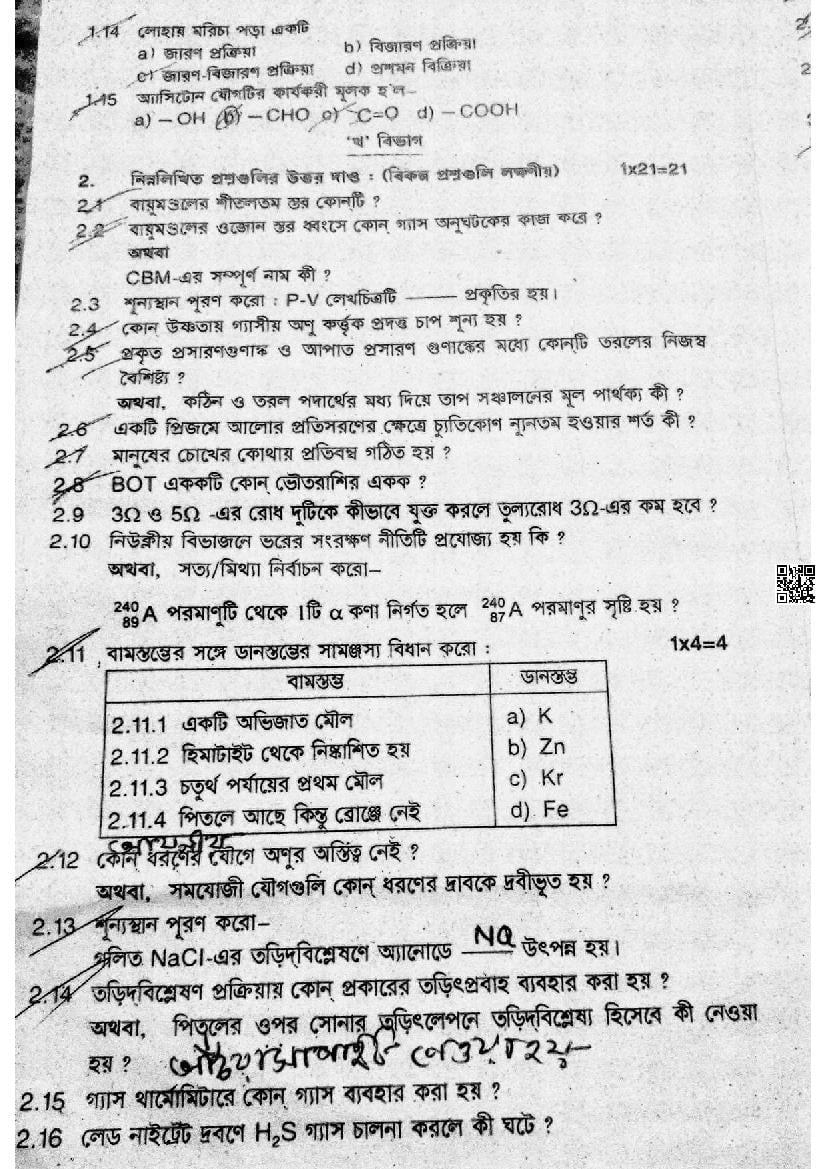 1.14 লোহায় মরিচা পড়া একটি
a) জারণ প্রক্রিয়া b) বিজারণ প্রক্রিয়া
c) জারণ-বিজারণ প্রক্রিয়া d) প্রশমন বিক্রিয়া
1.15 অ্যাসিটোন যৌগটির কার্যকরী মূলক হ'ল–
a) – OH b) – CHO c) C=O d) – COOH
'খ' বিভাগ
2. নিম্নলিখিত প্রশ্নগুলির উত্তর দাও : (বিকল্প প্রশ্নগুলি লক্ষণীয়) 1x21=21
2.1 বায়ুমণ্ডলের শীতলতম স্তর কোন্‌টি ?
2.2 বায়ুমণ্ডলের ওজোন স্তর ধ্বংসে কোন্ গ্যাস অনুঘটকের কাজ করে ?
অথবা
CBM-এর সম্পূর্ণ নাম কী ?
2.3 শূন্যস্থান পূরণ করো : P-V লেখচিত্রটি —— প্রকৃতির হয়।
2.4 কোন্ উষ্ণতায় গ্যাসীয় অণু কর্তৃক প্রদত্ত চাপ শূন্য হয় ?
2.5 প্রকৃত প্রসারণগুণাঙ্ক ও আপাত প্রসারণ গুণাঙ্কের মধ্যে কোন্‌টি তরলের নিজস্ব
বৈশিষ্ট্য ?
অথবা, কঠিন ও তরল পদার্থের মধ্য দিয়ে তাপ সঞ্চালনের মূল পার্থক্য কী ?
2.6 একটি প্রিজমে আলোর প্রতিসরণের ক্ষেত্রে চ্যুতিকোণ ন্যূনতম হওয়ার শর্ত কী ?
2.7 মানুষের চোখের কোথায় প্রতিবিম্ব গঠিত হয় ?
2.8 BOT এককটি কোন্ ভৌতরাশির একক ?
2.9 3Ω ও 5Ω -এর রোধ দুটিকে কীভাবে যুক্ত করলে তুল্যরোধ 3Ω-এর কম হবে ?
2.10 নিউক্লীয় বিভাজনে ভরের সংরক্ষণ নীতিটি প্রযোজ্য হয় কি ?
অথবা, সত্য/মিথ্যা নির্বাচন করো–
²⁴⁰₈₉A পরমাণুটি থেকে 1টি α কণা নির্গত হলে ²⁴⁰₈₇A পরমাণুর সৃষ্টি হয় ?
2.11 বামস্তম্ভের সঙ্গে ডানস্তম্ভের সামঞ্জস্য বিধান করো : 1x4=4
বামস্তম্ভ ডানস্তম্ভ
2.11.1 একটি অভিজাত মৌল a) K
2.11.2 হিমাটাইট থেকে নিষ্কাশিত হয় b) Zn
2.11.3 চতুর্থ পর্যায়ের প্রথম মৌল c) Kr
2.11.4 পিতলে আছে কিন্তু ব্রোঞ্জে নেই d) Fe
2.12 কোন্ ধরণের যৌগে অণুর অস্তিত্ব নেই ?
অথবা, সমযোজী যৌগগুলি কোন্ ধরণের দ্রাবকে দ্রবীভূত হয় ?
2.13 শূন্যস্থান পূরণ করো–
গলিত NaCl-এর তড়িদ্‌বিশ্লেষণে অ্যানোডে Na উৎপন্ন হয়।
2.14 তড়িদ্‌বিশ্লেষণ প্রক্রিয়ায় কোন্ প্রকারের তড়িৎপ্রবাহ ব্যবহার করা হয় ?
অথবা, পিতলের ওপর সোনার তড়িৎলেপনে তড়িদ্‌বিশ্লেষ্য হিসেবে কী নেওয়া
হয় ? নেওয়া হয়
2.15 গ্যাস থার্মোমিটারে কোন্ গ্যাস ব্যবহার করা হয় ?
2.16 লেড নাইট্রেট দ্রবণে H₂S গ্যাস চালনা করলে কী ঘটে ?